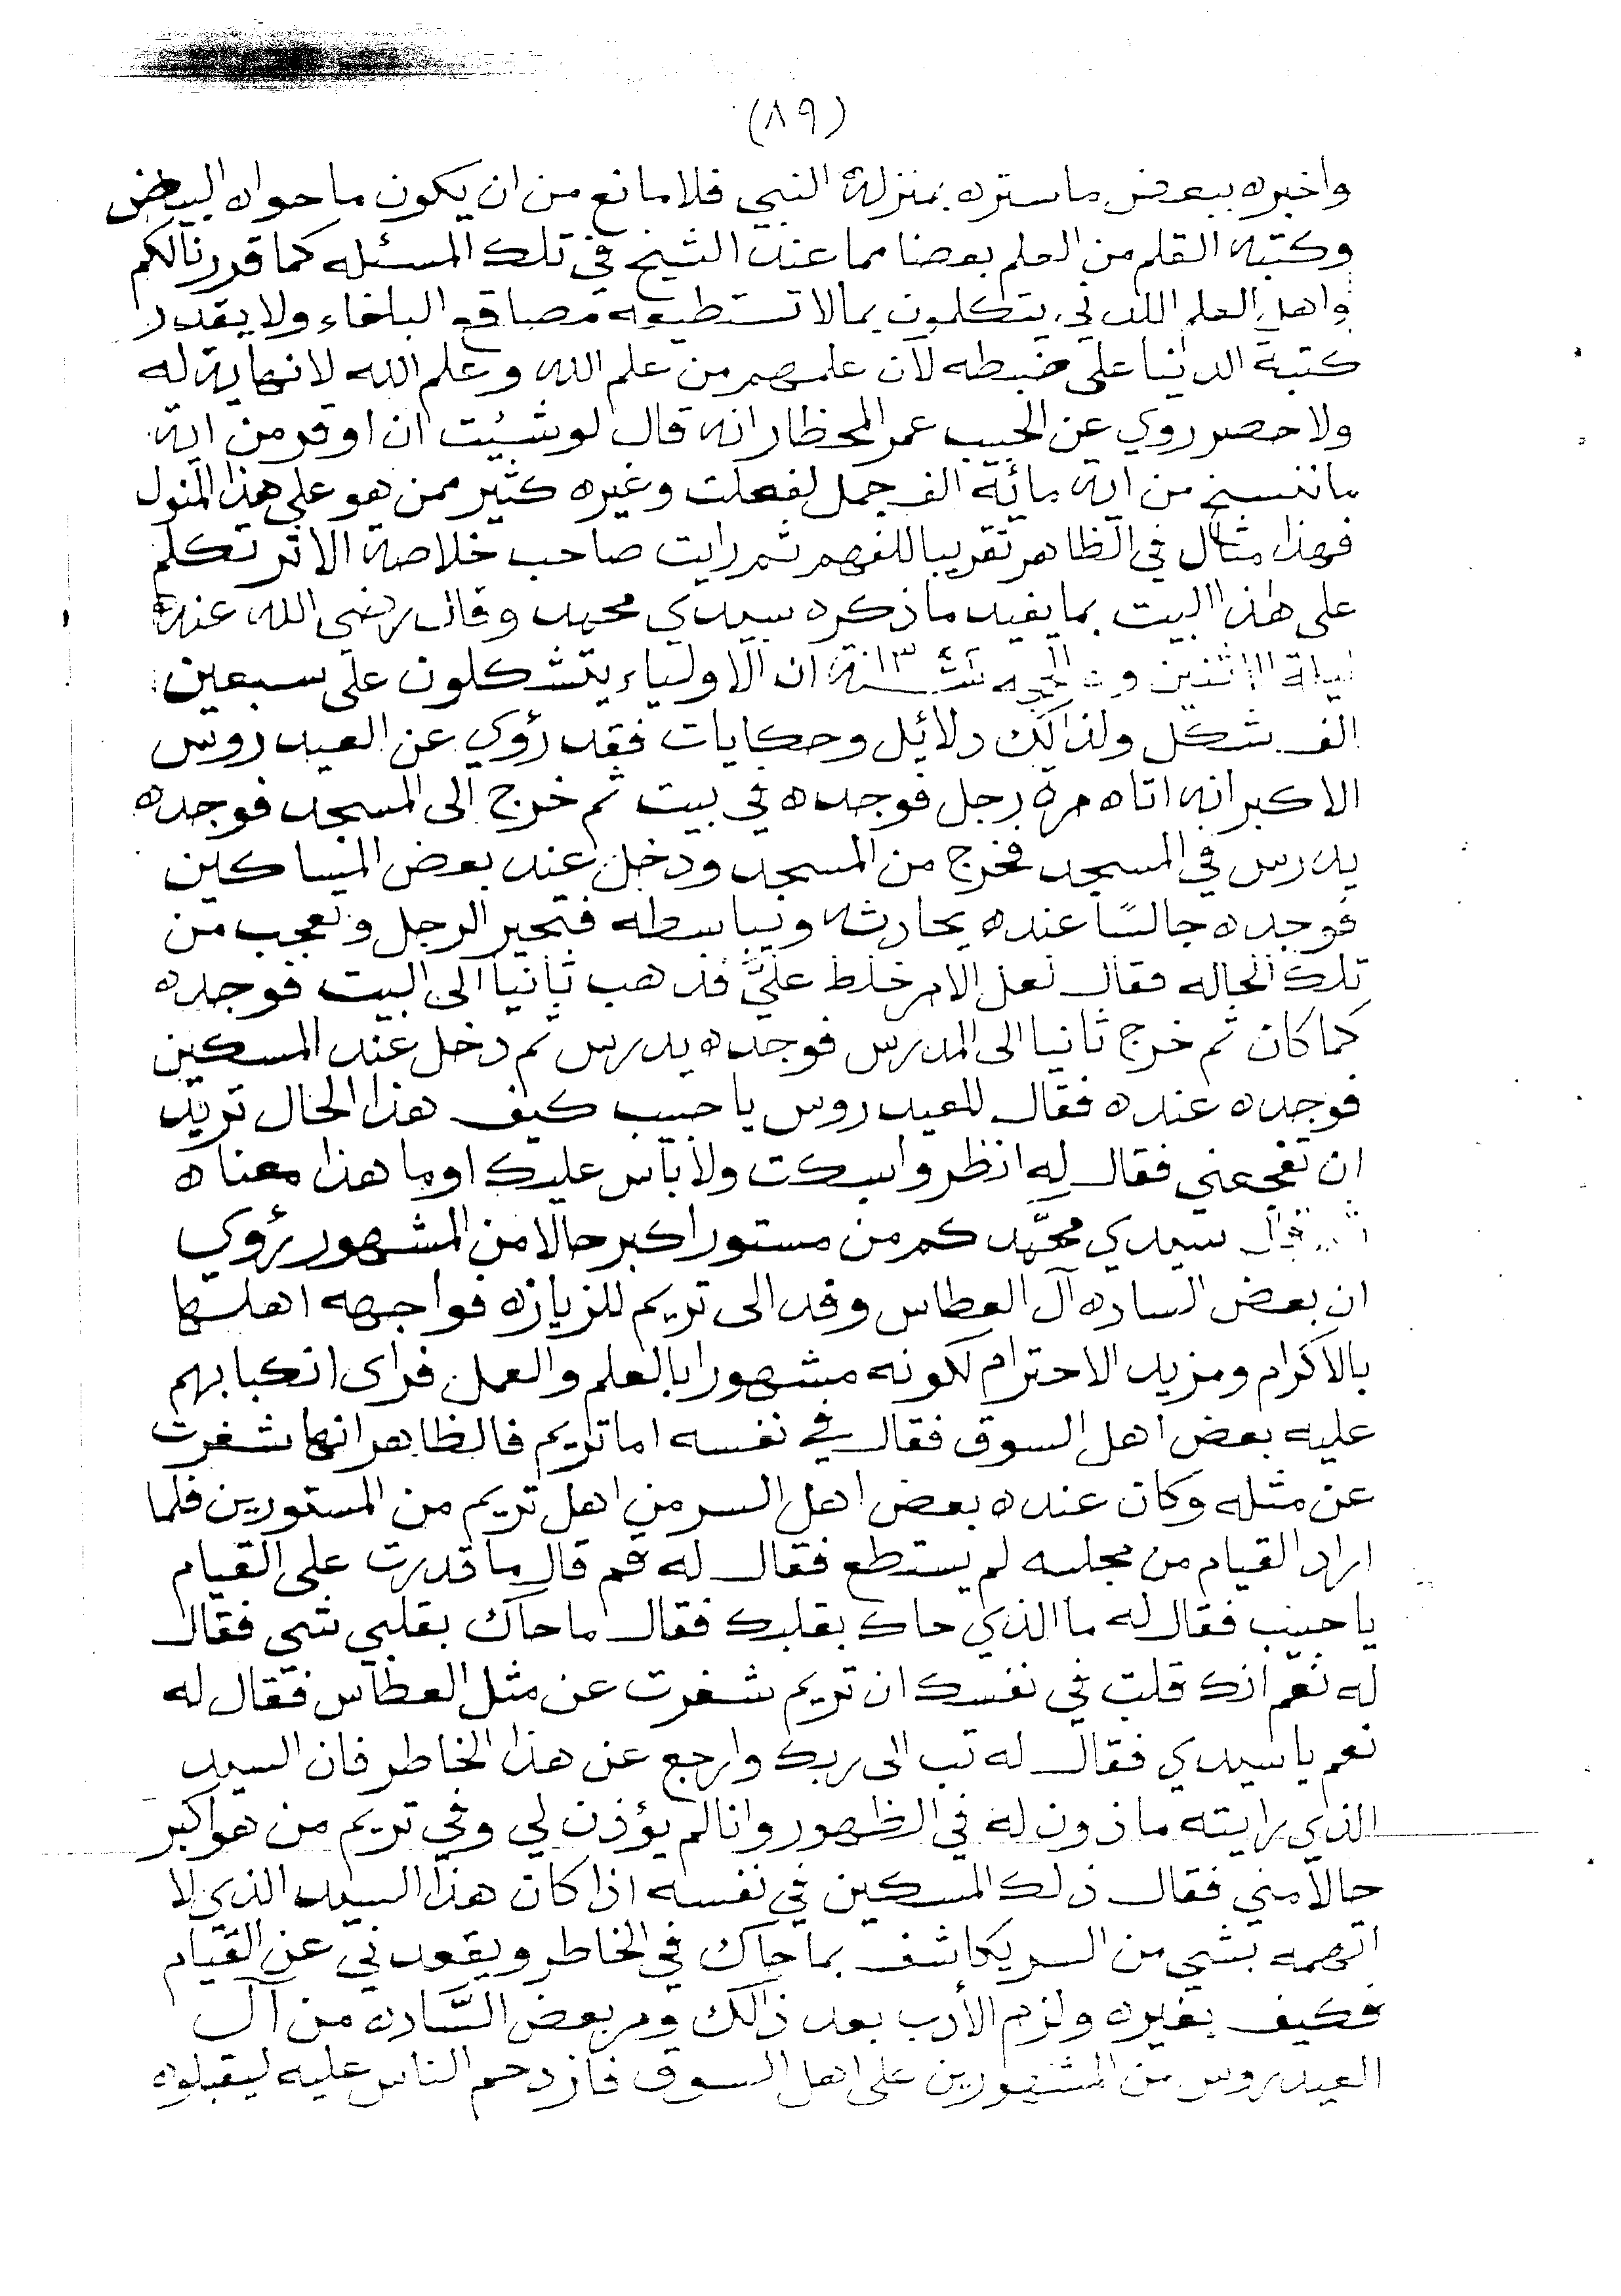 (٨٩)
واخبره ببعض ماستره بمنزلة النبي فلامانع من ان يكون ماحواه البياض
وكتبه القلم من العلم بعضا مما عند الشيخ في تلك المسئله كما قررنالكم
واهل العلم اللدني يتكلمون بمالا تستطيعه مصاقع البلغاء ولا يقدر
كتبة الدنيا على ضبطه لأن علمهم من علم الله وعلم الله لانهاية له
ولا حصر روي عن الحبيب عمر المحظار انه قال لوشئت ان اوقر من اية
ماننسخ من اية مائة الف جمل لفعلت وغيره كثير ممن هو على هذا المنول
فهذا مثال في الظاهر تقريبا للفهم ثم رايت صاحب خلاصة الاثر تكلم
على هذا البيت بما يفيد ماذكره سيدي محمد وقال رضي الله عنه
ليلة الاثنين الحجه ان الاولياء يتشكلون على سبعين
الف شكل ولذالك دلائل وحكايات فقد رؤي عن العيدروس
الاكبر انه اتاه مرة رجل فوجده في بيت ثم خرج الى المسجد فوجده
يدرس في المسجد فخرج من المسجد ودخل عند بعض المساكين
فوجده جالسًا عنده يحادثه ويباسطه فتحير الرجل وتعجب من
تلك الحاله فقال لعل الامر خلط عليَّ فذهب ثانيا الى البيت فوجده
كما كان ثم خرج ثانيا الى المدرس فوجده يدرس ثم دخل عند المسكين
فوجده عنده فقال للعيدروس يا حبيب كيف هذا الحال تريد
ان تفجعني فقال له انظر واسكت ولا بأس عليك اوما هذا معناه
قال سيدي محمَّد كم من مستور اكبر حالا من المشهور رؤي
ان بعض الساده آل العطاس وفد الى تريم للزياره فواجهه اهلها
بالاكرام ومزيد الاحترام لكونه مشهورا بالعلم والعمل فراى انكبابهم
عليه بعض اهل السوق فقال في نفسه اما تريم فالظاهر انها شغرت
عن مثله وكان عنده بعض اهل السر من اهل تريم من المستورين فلما
اراد القيام من مجلسه لم يستطع فقال له قم قال ما قدرت على القيام
يا حبيب فقال له ما الذي حاك بقلبك فقال ما حاك بقلبي شي فقال
له نعم انك قلت في نفسك ان تريم شغرت عن مثل العطاس فقال له
نعم ياسيدي فقال له تب الى ربك وارجع عن هذا الخاطر فان السيد
الذي رايته ماذون له في الظهور وانا لم يؤذن لي وفي تريم من هو اكبر
حالا مني فقال ذلك المسكين في نفسه اذا كان هذا السيد الذي لا
اتهمه بشي من السر يكاشف بما حاك في الخاطر ويقعدني عن القيام
فكيف بغيره ولزم الأدب بعد ذالك ومر بعض السَّاده من آل
العيدروس من المشهورين على اهل السوق فازدحم الناس عليه ليقبلوه